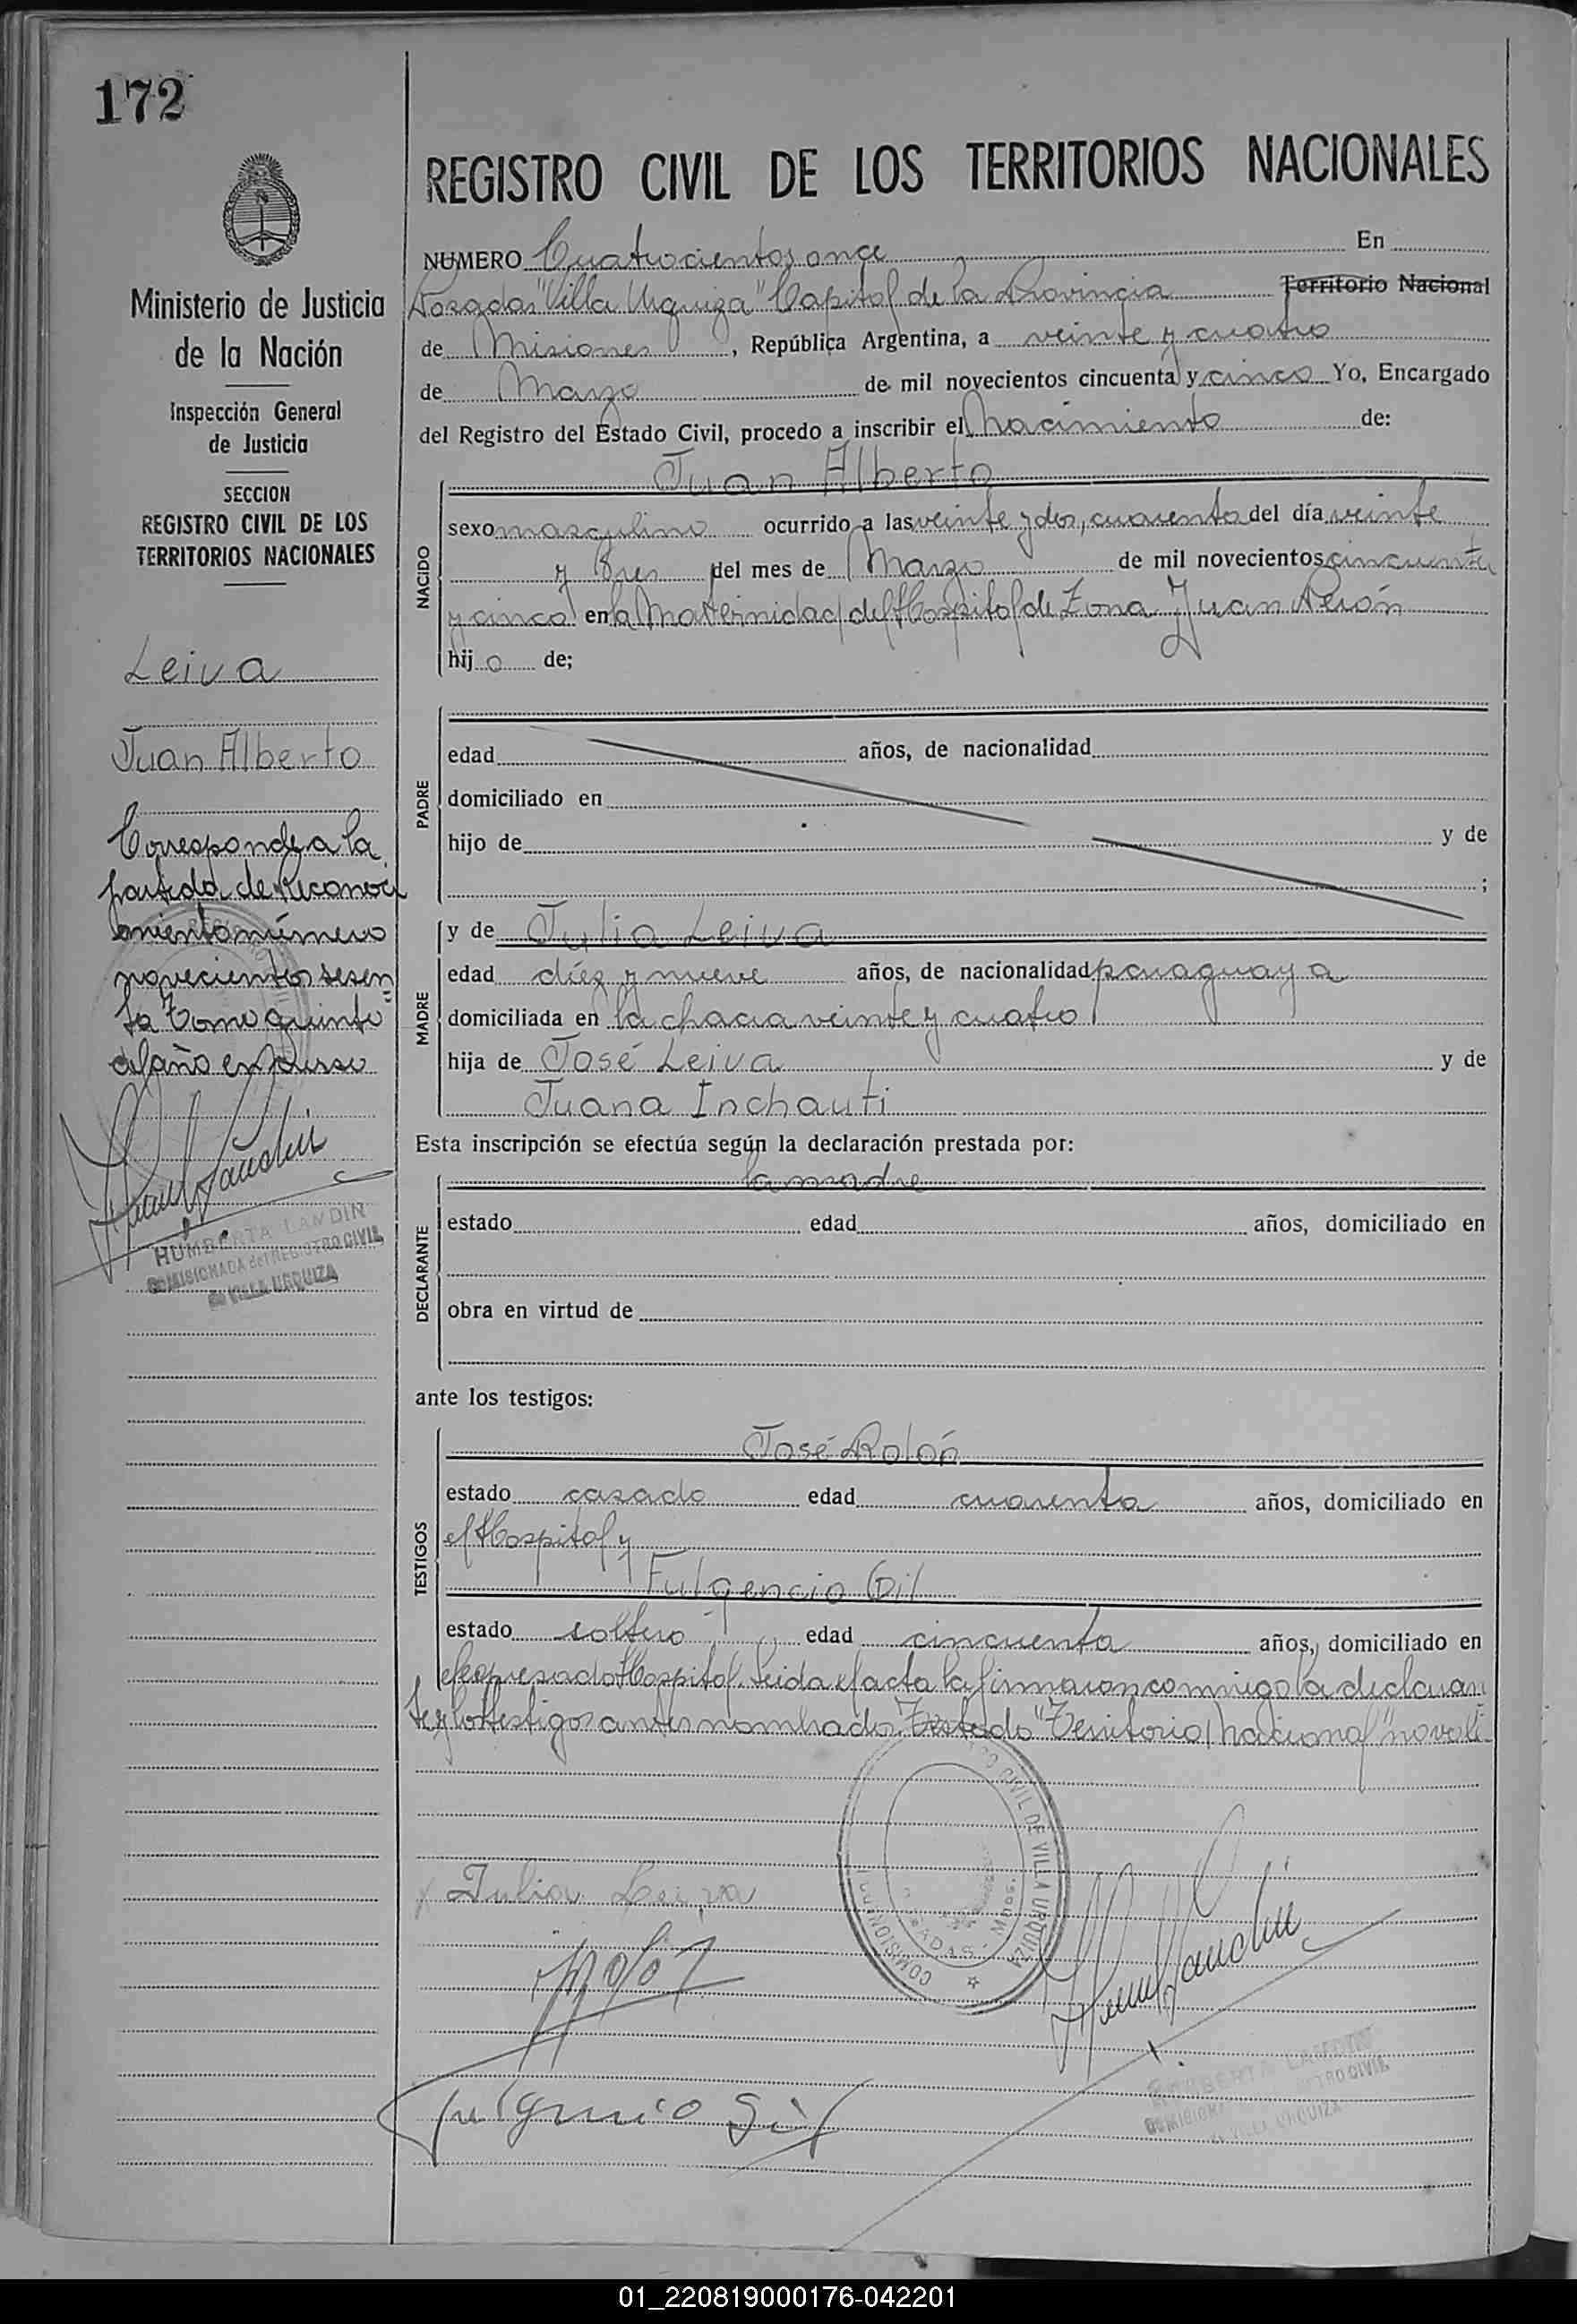 172
REGISTRO CIVIL DE LOS TERRITORIOS NACIONALES
Ministerio de Justicia
de la Nación
Inspección General
de Justicia
SECCION
REGISTRO CIVIL DE LOS
TERRITORIOS NACIONALES
Leiva
Juan Alberto
Corresponde a la
partida de Reconoci
miento número
novecientos sesen
ta Tomo quinto
del año en curso
HUMBERTA LANDIN
COMISIONADA del REGISTRO CIVIL
de VILLA URQUIZA
NUMERO Cuatrocientos once En
Posadas "Villa Urquiza" Capital de la Provincia Territorio Nacional
de Misiones, República Argentina, a veinte y cuatro
de Marzo de mil novecientos cincuenta y cinco Yo, Encargado
del Registro del Estado Civil, procedo a inscribir el Nacimiento de:
NACIDO
Juan Alberto
sexo masculino ocurrido a las veinte y dos, cuarenta del día veinte
y tres del mes de Marzo de mil novecientos cincuenta
y cinco en la Maternidad del Hospital de Zona Juan Perón
hijo de;
PADRE
edad años, de nacionalidad
domiciliado en
hijo de y de
;
MADRE
y de Julia Leiva
edad diez y nueve años, de nacionalidad paraguaya
domiciliada en la chacra veinte y cuatro
hija de José Leiva y de
Juana Inchauti
Esta inscripción se efectúa según la declaración prestada por:
DECLARANTE
la madre
estado edad años, domiciliado en
obra en virtud de
ante los testigos:
TESTIGOS
José Rolón
estado casado edad cuarenta años, domiciliado en
el Hospital y
Fulgencio Gil
estado soltero edad cincuenta años, domiciliado en
el expresado Hospital. Leida el acta la firmaron conmigo la declaran
te y los testigos antes nombrados. Testado "Territorio Nacional" no vale
COMISIONADO REGISTRO CIVIL DE VILLA URQUIZA
POSADAS - Mnes.
Julia Leiva
Fulgencio Gil
HUMBERTA LANDIN
COMISIONADA del REGISTRO CIVIL
de VILLA URQUIZA
01_220819000176-042201